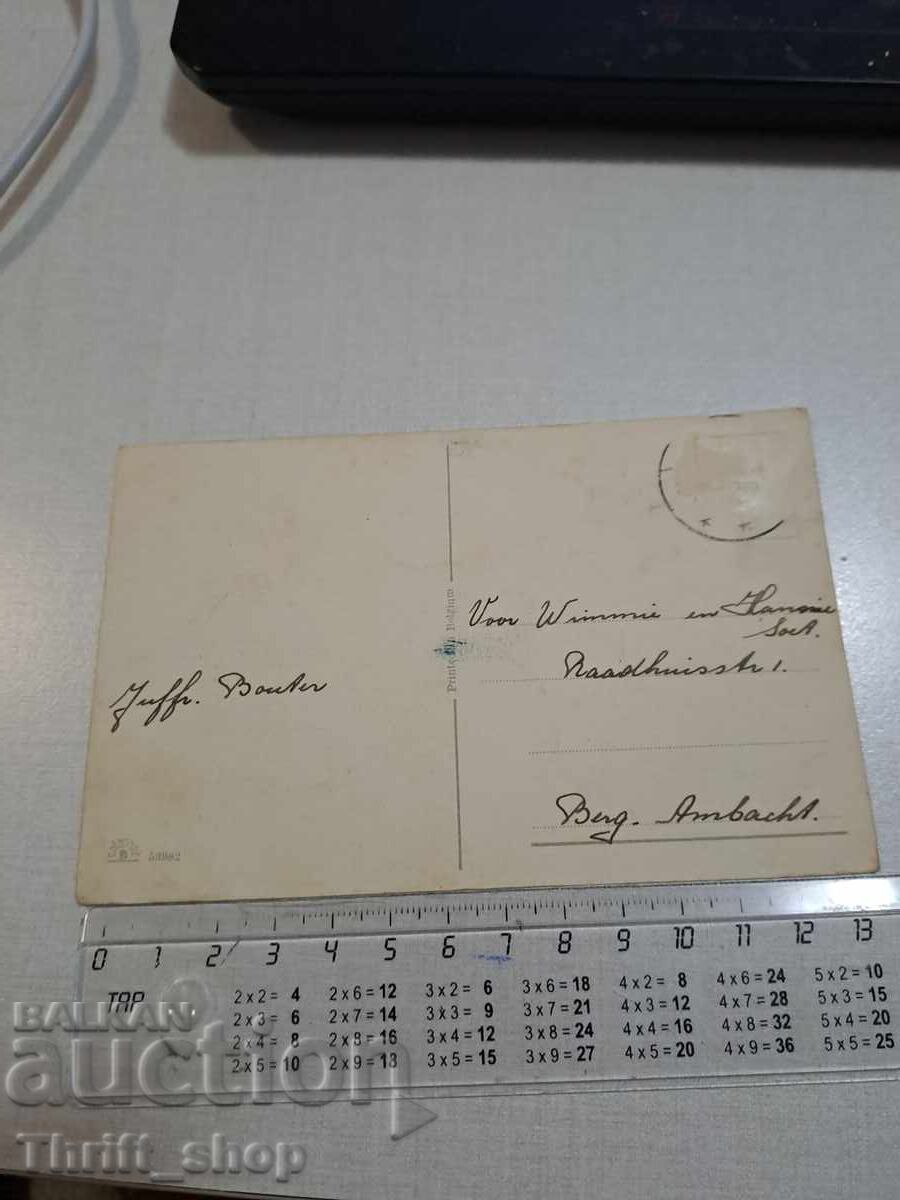 Voor Wimmie en Hannie
Soet.
Raadhuisstr 1.
Berg. Ambacht.
Juffr. Bouter
Printed in Belgium
0 1 2 3 4 5 6 7 8 9 10 11 12 13
2 x 2 = 4 2 x 6 = 12 3 x 2 = 6 3 x 6 = 18 4 x 2 = 8 4 x 6 = 24 5 x 2 = 10
2 x 3 = 6 2 x 7 = 14 3 x 3 = 9 3 x 7 = 21 4 x 3 = 12 4 x 7 = 28 5 x 3 = 15
2 x 4 = 8 2 x 8 = 16 3 x 4 = 12 3 x 8 = 24 4 x 4 = 16 4 x 8 = 32 5 x 4 = 20
2 x 5 = 10 2 x 9 = 18 3 x 5 = 15 3 x 9 = 27 4 x 5 = 20 4 x 9 = 36 5 x 5 = 25
BALKAN
auction
Thrift_shop